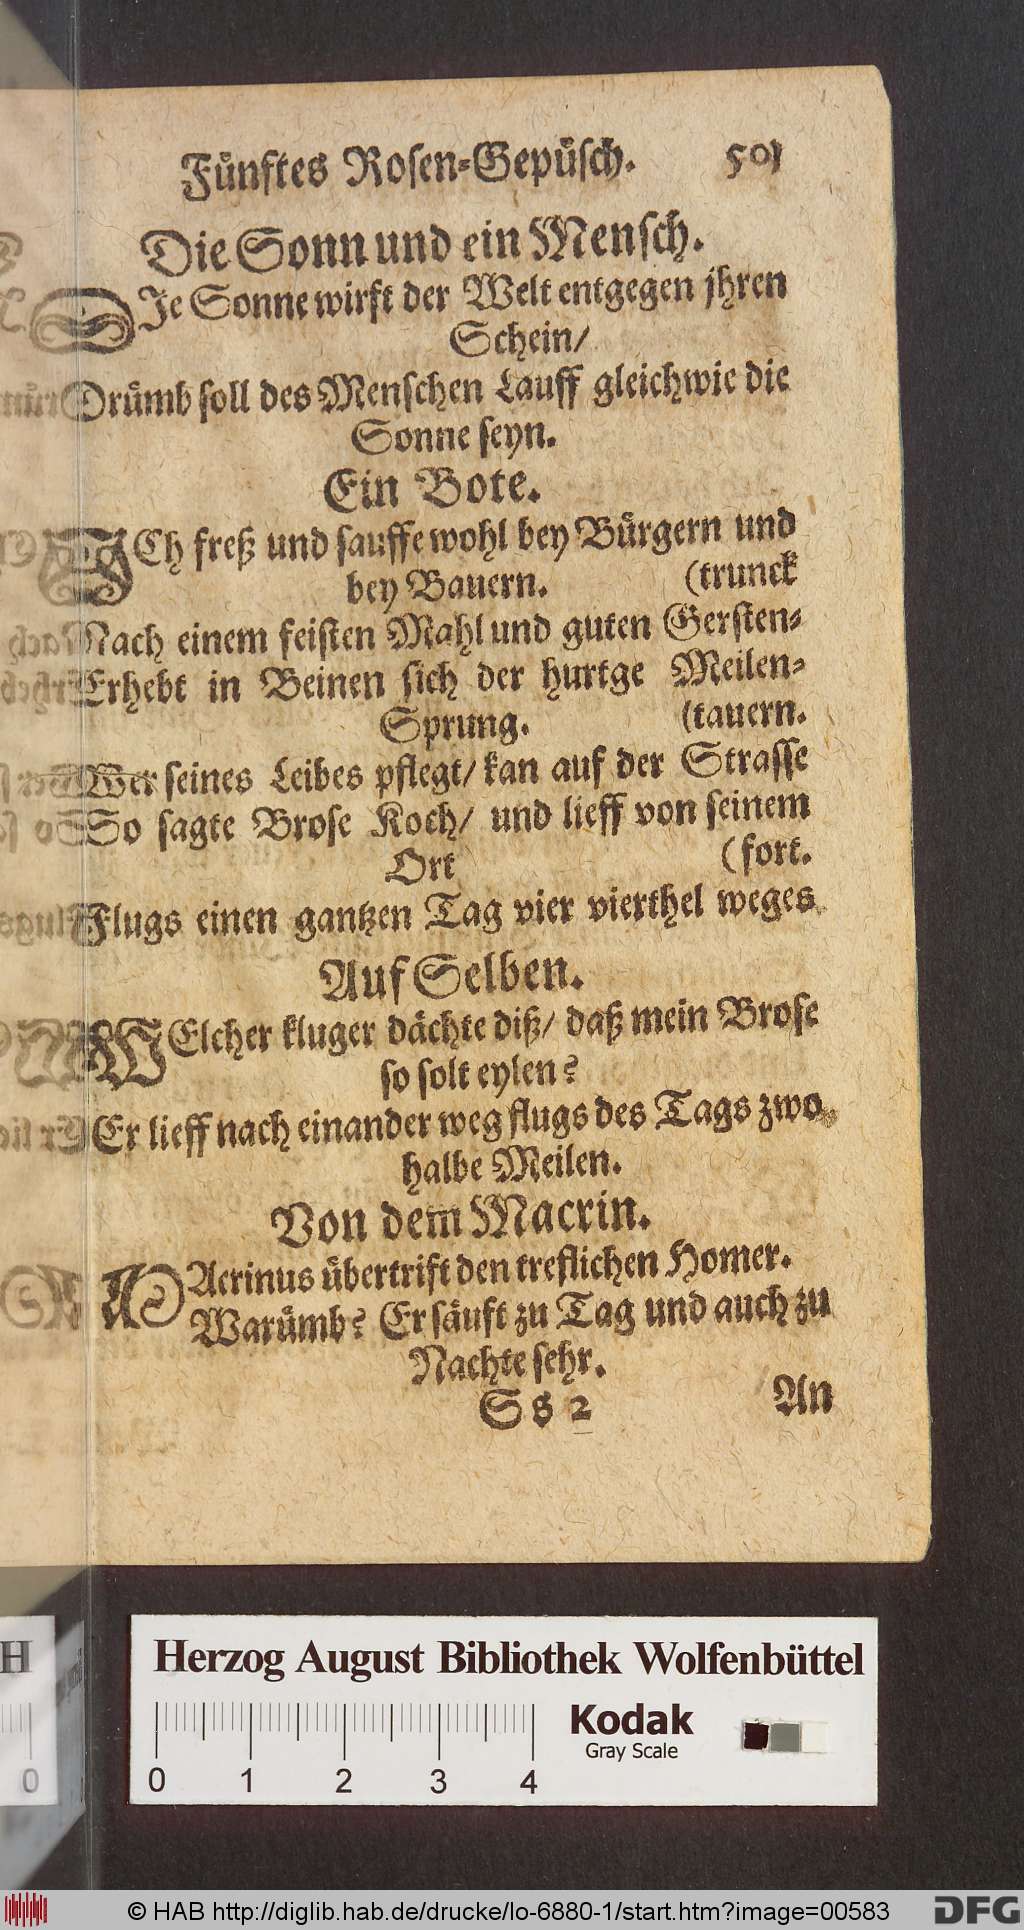 Fünftes Rosen-Gepüsch. 501
Die Sonn und ein Mensch.
DIe Sonne wirft der Welt entgegen jhren
Schein/
Drümb soll des Menschen Lauff gleichwie die
Sonne seyn.
Ein Bote.
ICh freß und sauffe wohl bey Bürgern und
bey Bauern. (trunck
Nach einem feisten Mahl und guten Gersten-
Erhebt in Beinen sich der hurtge Meilen-
Sprung. (tauern.
Wer seines Leibes pflegt/ kan auf der Strasse
So sagte Brose Koch/ und lieff von seinem
Ort (fort.
Flugs einen gantzen Tag vier vierthel weges
Auf Selben.
WElcher kluger dächte diß/ daß mein Brose
so solt eylen?
Er lieff nach einander weg flugs des Tags zwo
halbe Meilen.
Von dem Macrin.
MAcrinus übertrift den treflichen Homer.
Warümb? Er säuft zu Tag und auch zu
Nachte sehr.
Ss 2 An
Herzog August Bibliothek Wolfenbüttel
Kodak
Gray Scale
0 1 2 3 4
H
0
© HAB http://diglib.hab.de/drucke/lo-6880-1/start.htm?image=00583
DFG